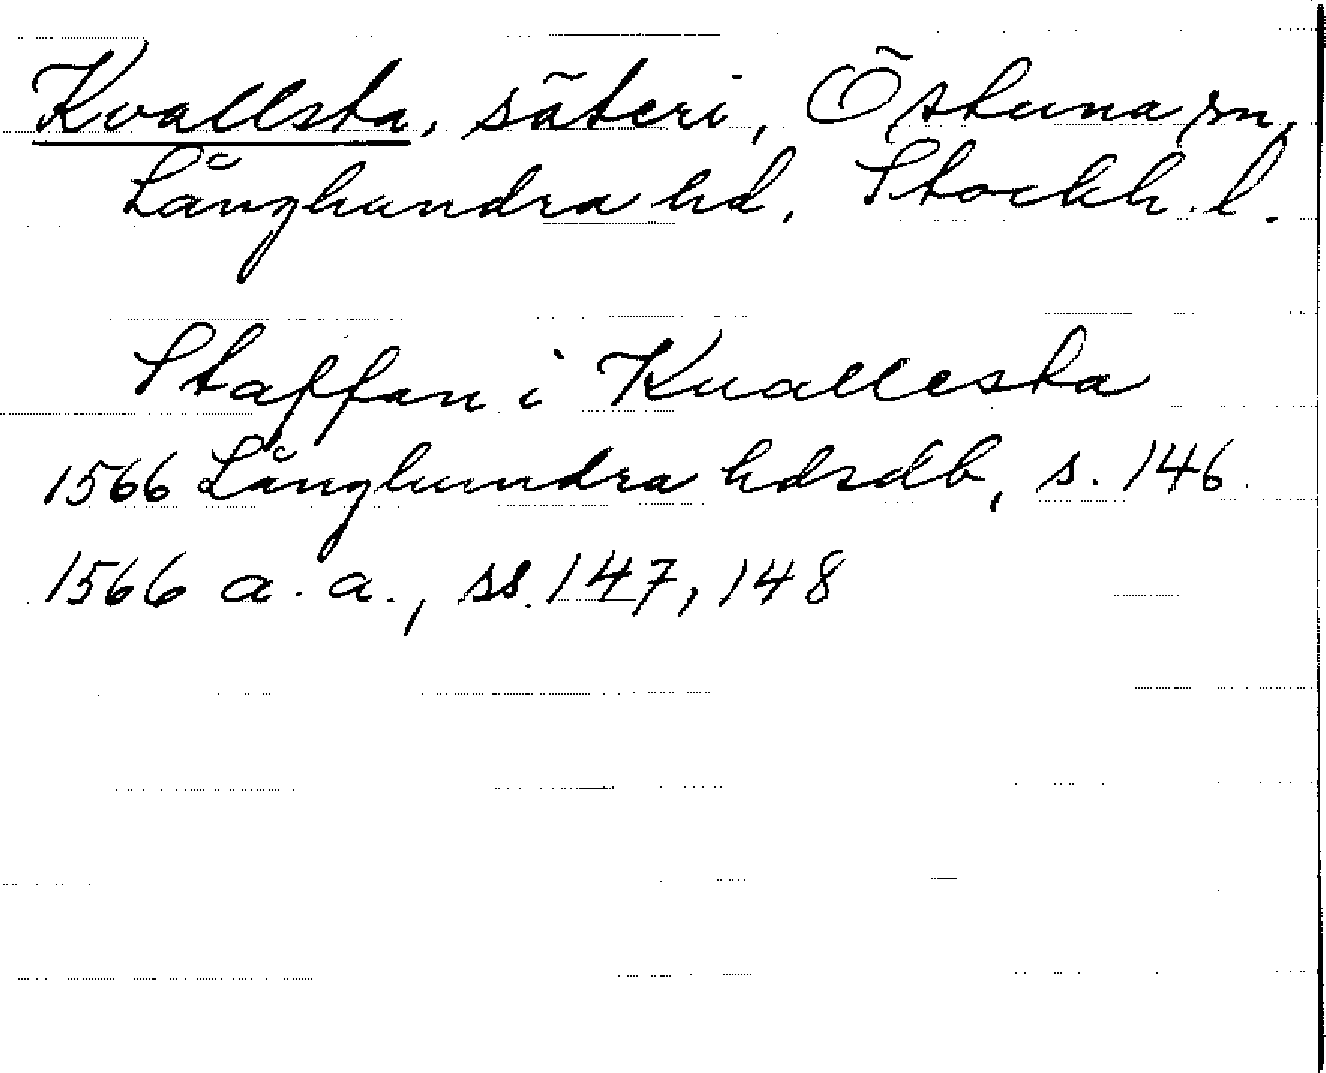 Kvallsta, säteri, Östuna sn,
Långhundra hd, Stockh. l.
Staffan i Kuallesta
1566 Långhundra hdsdb, s. 146
1566 a. a., ss. 147, 148